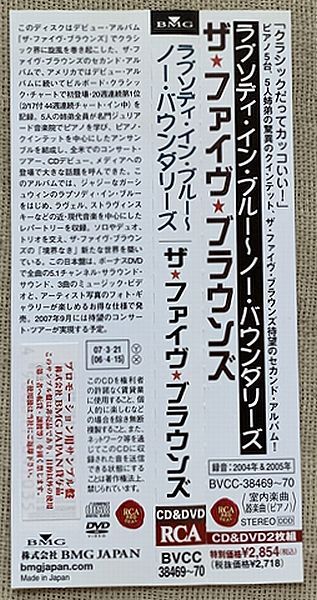 「クラシックだってカッコいい！」
ピアノ5台、5人姉弟の驚異のクインテット、ザ・ファイヴ・ブラウンズ待望のセカンド・アルバム！
ラプソディ・イン・ブルー〜ノー・バウンダリーズ
ザ★ファイヴ★ブラウンズ
録音：2004年&2005年
BVCC-38469~70
室内楽曲
器楽曲(ピアノ)
STEREO DDD
CD&DVD2枚組
特別価格¥2,854(税込)
(税抜価格¥2,718)
BMG
ラプソディ・イン・ブルー〜
ノー・バウンダリーズ
ザ★ファイヴ★ブラウンズ
CD&DVD
RCA
BVCC
38469~70
このディスクはデビュー・アルバム
『ザ・ファイヴ・ブラウンズ』でクラシッ
ク界に旋風を巻き起こした、ザ・フ
ァイヴ・ブラウンズのセカンド・アル
バムで、アメリカではデビュー・アル
バムに続いてビルボード・クラシッ
ク・チャートで初登場・20週連続第1位
(2/17付 44週連続チャート・イン中)を
記録。5人の姉弟全員が名門ジュリ
アード音楽院でピアノを学び、ピアノ・
クインテットを中心にしたアンサンブ
ルを結成し、全米でのコンサート・
ツアー、CDデビュー、メディアへの
登場で大きな話題を呼んできた。こ
のアルバムでは、ジャージー・ガーシ
ュウィンのラプソディ・イン・ブルー
をはじめ、ラヴェル、ストラヴィンス
キーなどの近・現代音楽を中心にした
レパートリーを収録。ソロやデュオ、
トリオを交え、ザ・ファイヴ・ブラウン
ズの「境界なき」新たな世界を築い
ている。この日本盤は、ボーナスDVD
で全曲の5.1チャンネル・サラウンド・
サウンド、3曲のミュージック・ビデ
オと、アーティスト写真のフォト・ギ
ャラリーが楽しめるお得な仕様で発
売。2007年9月には待望のコンサー
ト・ツアーが実現する予定。
07・3・21
(06・4・15)
プロモーション用サンプル盤
株式会社 BMG JAPAN 貸与品
このCDを権利者
の許諾なく賃貸業
に使用すること、個
人的に楽しむなど
の場合を除き無断
複製すること、また、
ネットワーク等を
通じてこのCDに収
録された音を送信
できる状態にする
ことは著作権法上、
禁じられています。
COMPACT
DIGITAL AUDIO
DVD
VIDEO
RCA
BMG
株式会社 BMG JAPAN
bmgjapan.com
Made in Japan